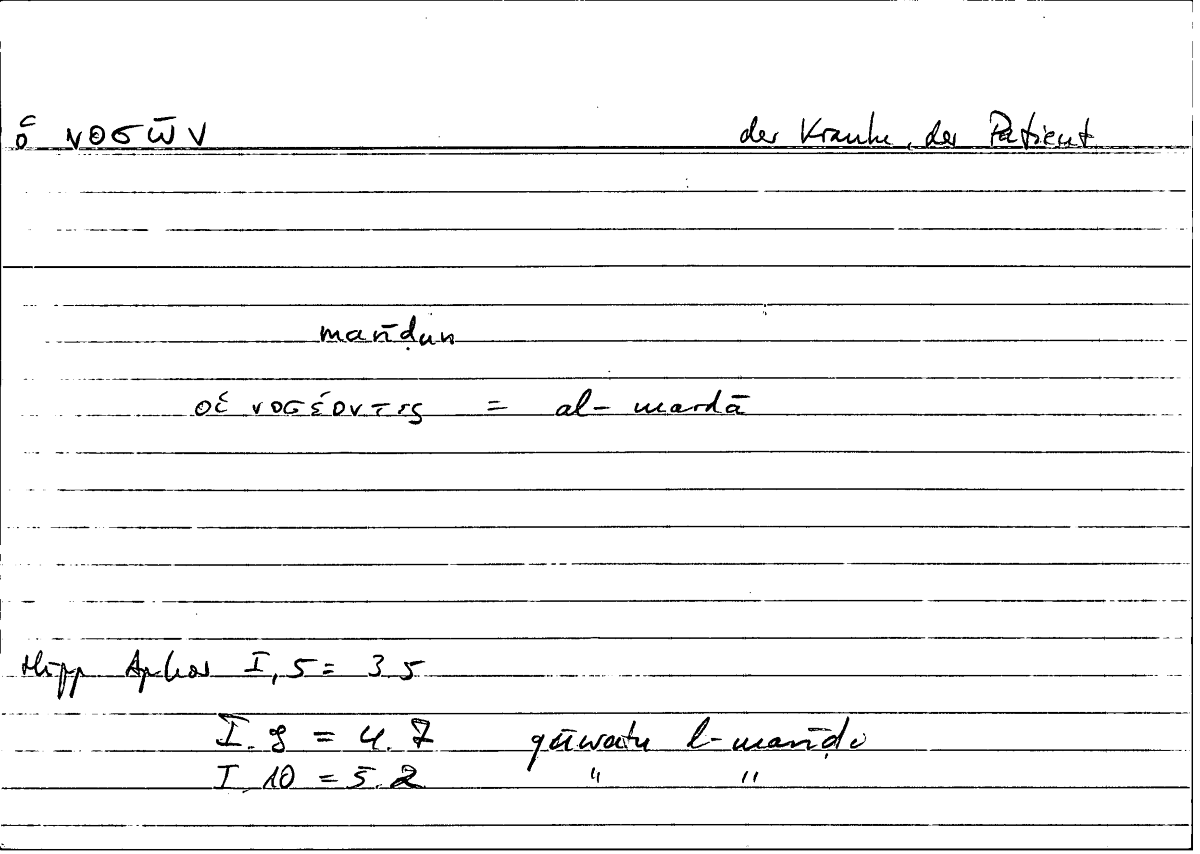 ὁ νοσῶν der Kranke, der Patient
marīḍun
οἱ νοσέοντες = al-marḍā
Hipp Aphor I, 5 = 3 5
I. 9 = 4. 7 qūwatu l-marīḍi
I, 10 = 5. 2 " "